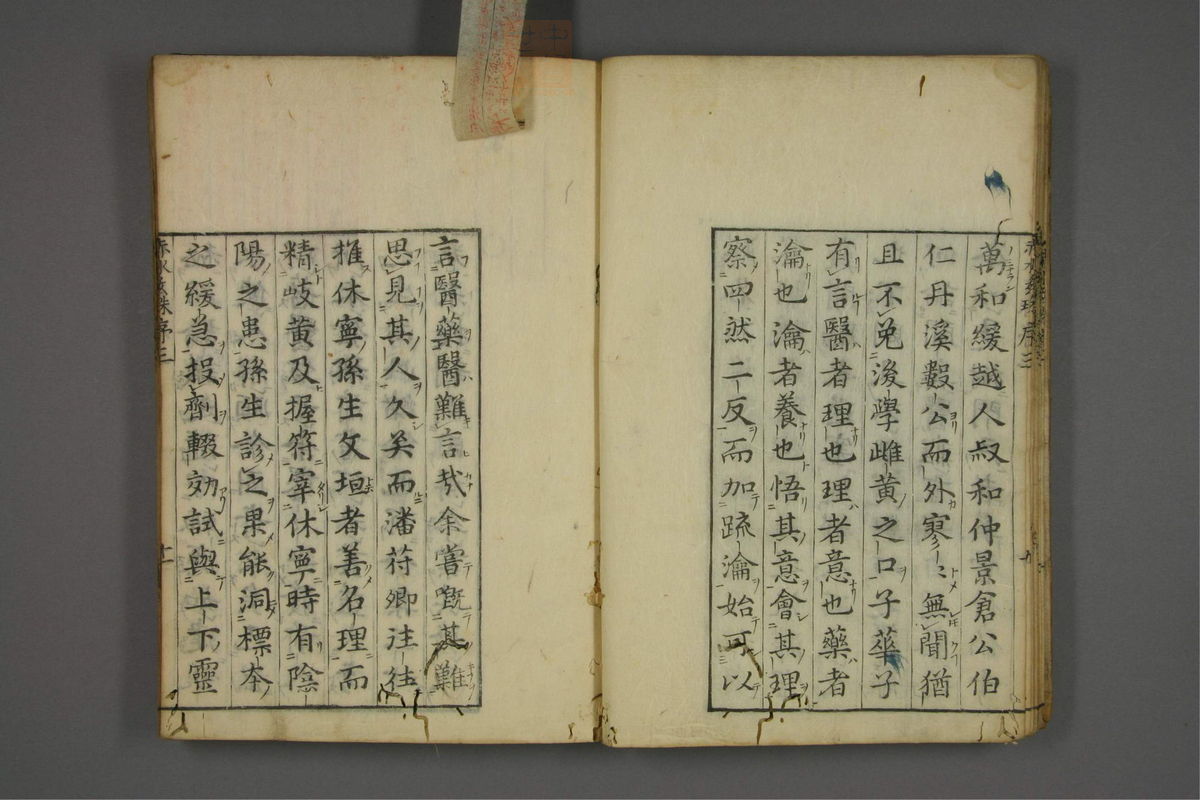 萬和緩越人叔和仲景倉公伯
仁丹溪數公而外寥〻無聞猶
且不免後學雌黃之口子華子
有言醫者理也理者意也藥者
瀹也瀹者養也悟其意會其理
察四然二反而加疏瀹始可以
言醫藥醫難言㢤余嘗慨其難
思見其人久矣而潘苻卿徃徃
推休寧孫生文垣者善名理而
精岐黃及握符宰休寧時有陰
陽之患孫生診之果能洞標本
之緩急投劑輟効試與上下靈
赤水玄珠序三
十一